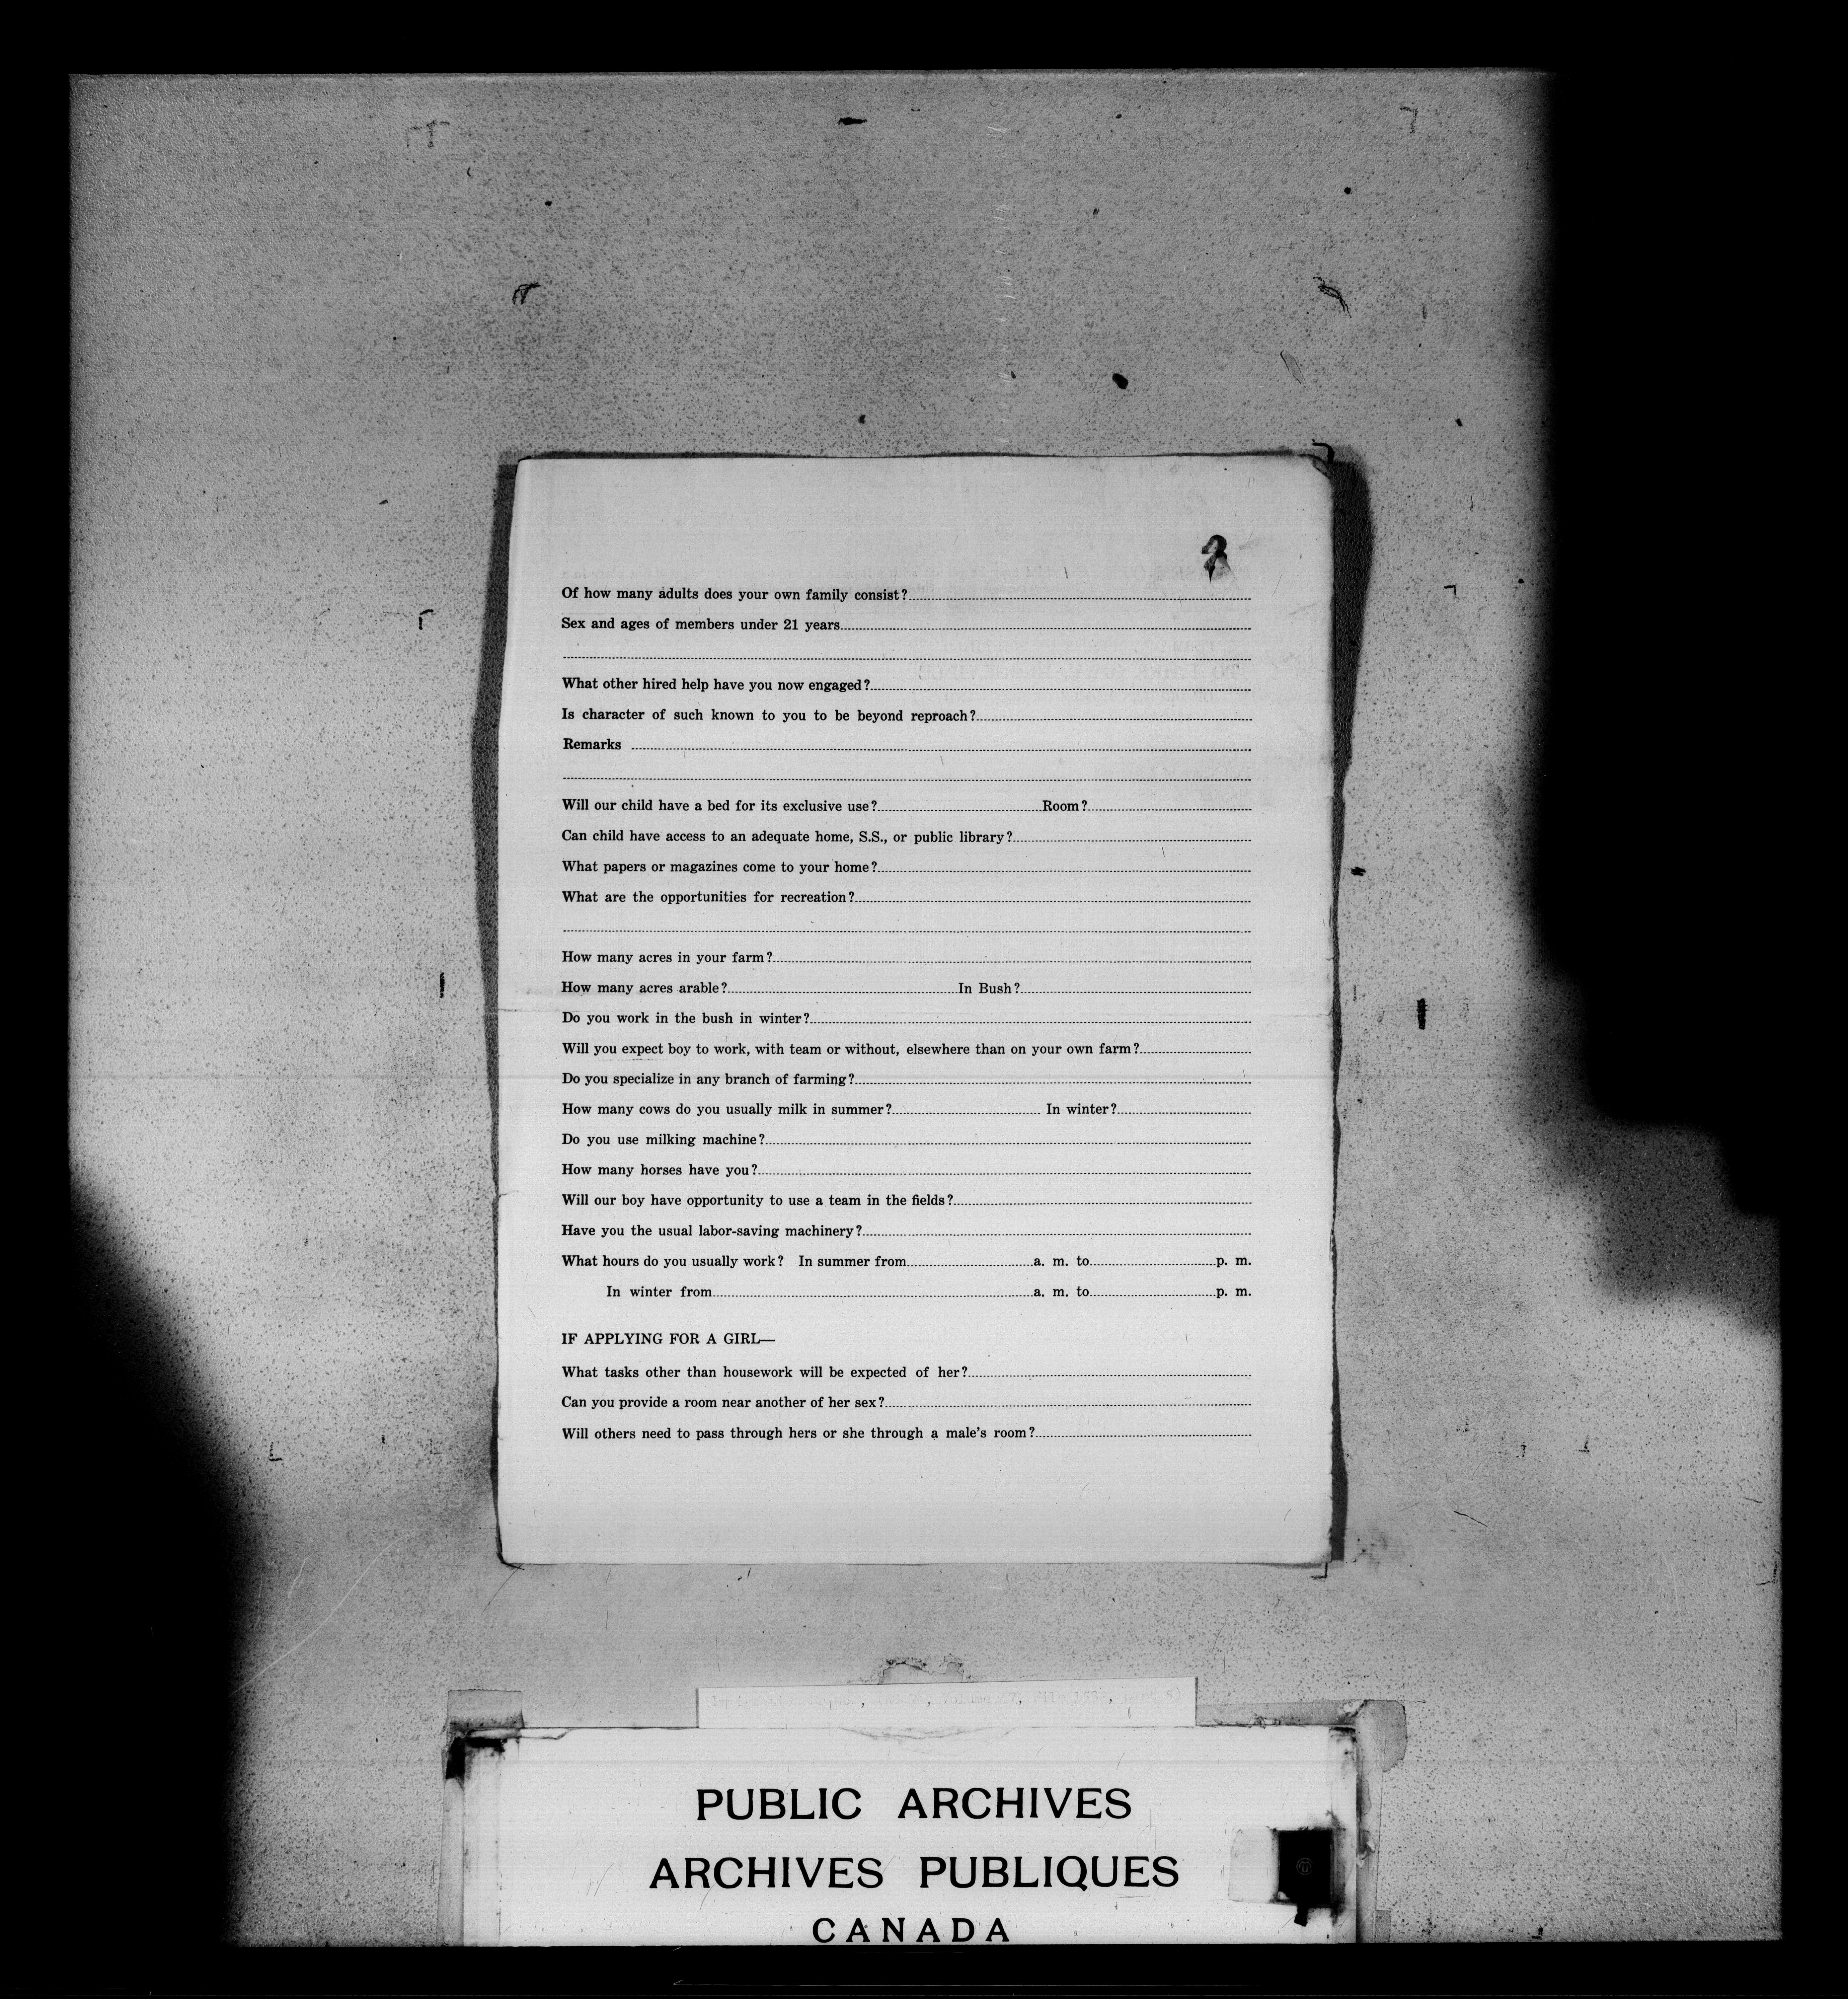 Of how many adults does your own family consist?
Sex and ages of members under 21 years
What other hired help have you now engaged?
Is character of such known to you to be beyond reproach?
Remarks
Will our child have a bed for its exclusive use? Room?
Can child have access to an adequate home, S.S., or public library?
What papers or magazines come to your home?
What are the opportunities for recreation?
How many acres in your farm?
How many acres arable? In Bush?
Do you work in the bush in winter?
Will you expect boy to work, with team or without, elsewhere than on your own farm?
Do you specialize in any branch of farming?
How many cows do you usually milk in summer? In winter?
Do you use milking machine?
How many horses have you?
Will our boy have opportunity to use a team in the fields?
Have you the usual labor-saving machinery?
What hours do you usually work? In summer from a. m. to p. m.
In winter from a. m. to p. m.
IF APPLYING FOR A GIRL—
What tasks other than housework will be expected of her?
Can you provide a room near another of her sex?
Will others need to pass through hers or she through a male's room?
Volume 67, File 1532,
PUBLIC ARCHIVES
ARCHIVES PUBLIQUES
CANADA